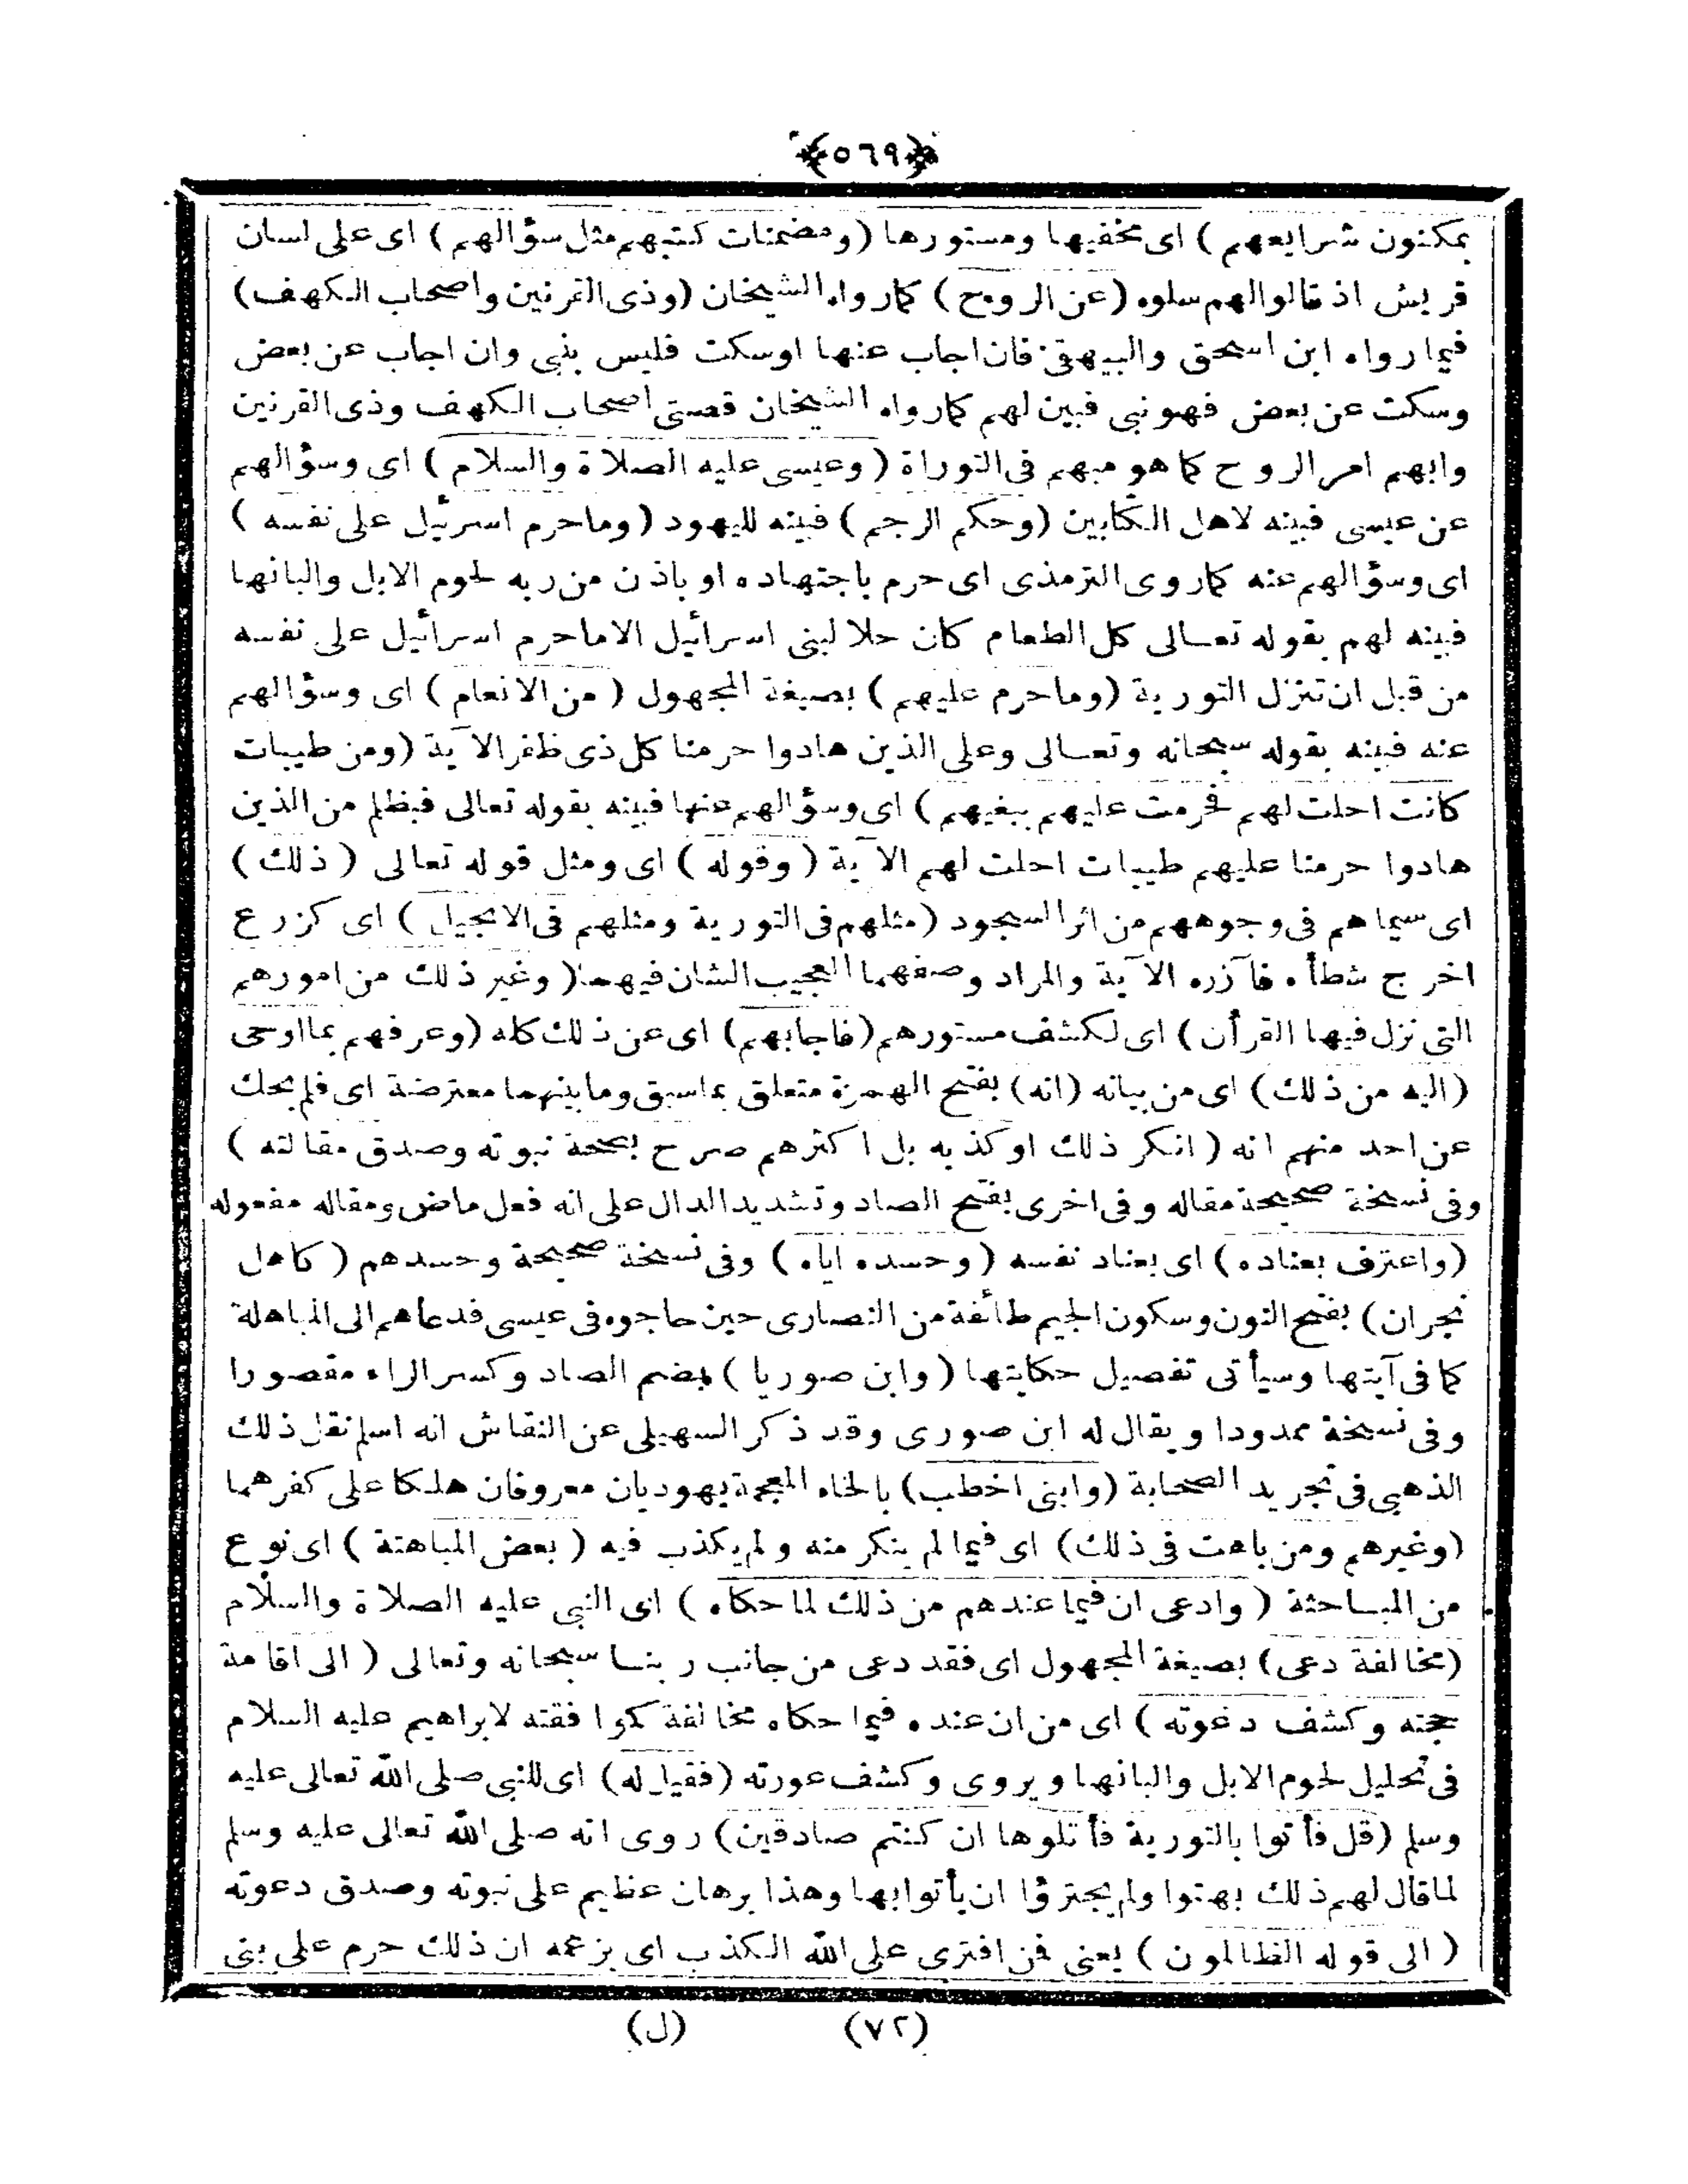 ﴿٥٦٩﴾
بمكنون شرايعهم ) اى مخفيها ومستورها (ومضمنات كتبهم مثل سؤالهم ) اى على لسان
قريش اذ قالوا لهم سلوه (عن الروح ) كما رواه الشيخان (وذى القرنين واصحاب الكهف)
فيما رواه ابن اسحق والبيهقى فان اجاب عنها او سكت فليس بنبى وان اجاب عن بعض
وسكت عن بعض فهو نبى فبين لهم كما رواه الشيخان قصتى اصحاب الكهف وذى القرنين
وابهم امر الروح كما هو مبهم فى التوراة ( وعيسى عليه الصلاة والسلام ) اى وسؤالهم
عن عيسى فبينه لاهل الكتابين (وحكم الرجم ) فبينه لليهود ( وما حرم اسرئيل على نفسه )
اى وسؤالهم عنه كما روى الترمذى اى حرم باجتهاده او باذن من ربه لحوم الابل والبانها
فبينه لهم بقوله تعالى كل الطعام كان حلا لبنى اسرائيل الا ماحرم اسرائيل على نفسه
من قبل ان تنزل التورية (وما حرم عليهم ) بصيغة المجهول ( من الانعام ) اى وسؤالهم
عنه فبينه بقوله سبحانه وتعالى وعلى الذين هادوا حرمنا كل ذى ظفر الآية (ومن طيبات
كانت احلت لهم فحرمت عليهم ببغيهم ) اى وسؤالهم عنها فبينه بقوله تعالى فبظلم من الذين
هادوا حرمنا عليهم طيبات احلت لهم الآية ( وقوله ) اى ومثل قوله تعالى ( ذلك )
اى سيماهم فى وجوههم من اثر السجود (مثلهم فى التورية ومثلهم فى الانجيل ) اى كزرع
اخرج شطأه فآزره الآية والمراد وصفهما العجيب الشان فيهما ( وغير ذلك من امورهم
التى نزل فيها القرأن ) اى لكشف مستورهم (فاجابهم) اى عن ذلك كله (وعرفهم بما اوحى
(اليه من ذلك ) اى من بيانه (انه) بفتح الهمزة متعلق بما سبق وما بينهما معترضة اى فلم يحك
عن احد منهم انه ( انكر ذلك او كذبه بل اكثرهم صرح بصحة نبوته وصدق مقالته )
وفى نسخة صحيحة مقاله وفى اخرى بفتح الصاد وتشديد الدال على انه فعل ماض ومقاله مفعوله
(واعترف بعناده ) اى بعناد نفسه (وحسده اياه ) وفى نسخة صحيحة وحسدهم ( كاهل
نجران ) بفتح النون وسكون الجيم طائفة من النصارى حين حاجوه فى عيسى فدعاهم الى المباهلة
كما فى آيتها وسيأتى تفصيل حكايتها ( وابن صوريا ) بضم الصاد وكسر الراء مقصورا
وفى نسخة ممدودا ويقال له ابن صورى وقد ذكر السهيلى عن النقاش انه اسلم نقل ذلك
الذهبى فى تجريد الصحابة (وابنى اخطب ) بالخاء المعجمة يهوديان معروفان هلكا على كفرهما
(وغيرهم ومن باهت فى ذلك ) اى فيما لم ينكر منه ولم يكذب فيه ( بعض المباهتة ) اى نوع
من المباحثة ( وادعى ان فيما عندهم من ذلك لما حكاه ) اى النبى عليه الصلاة والسلام
(مخالفة دعى) بصيغة المجهول اى فقد دعى من جانب ربنا سبحانه وتعالى ( الى اقامة
حجته وكشف دعوته ) اى من ان عنده فيما حكاه مخالفة كموافقته لابراهيم عليه السلام
فى تحليل لحوم الابل والبانها ويروى وكشف عورته (فقيل له) اى للنبى صلى الله تعالى عليه
وسلم (قل فأتوا بالتورية فأتلوها ان كنتم صادقين) روى انه صلى الله تعالى عليه وسلم
لما قال لهم ذلك بهتوا ولم يجترؤا ان يأتوا بها وهذا برهان عظيم على نبوته وصدق دعوته
( الى قوله الظالمون ) يعنى فمن افترى على الله الكذب اى بزعمه ان ذلك حرم على بنى
(٧٢) (ل)